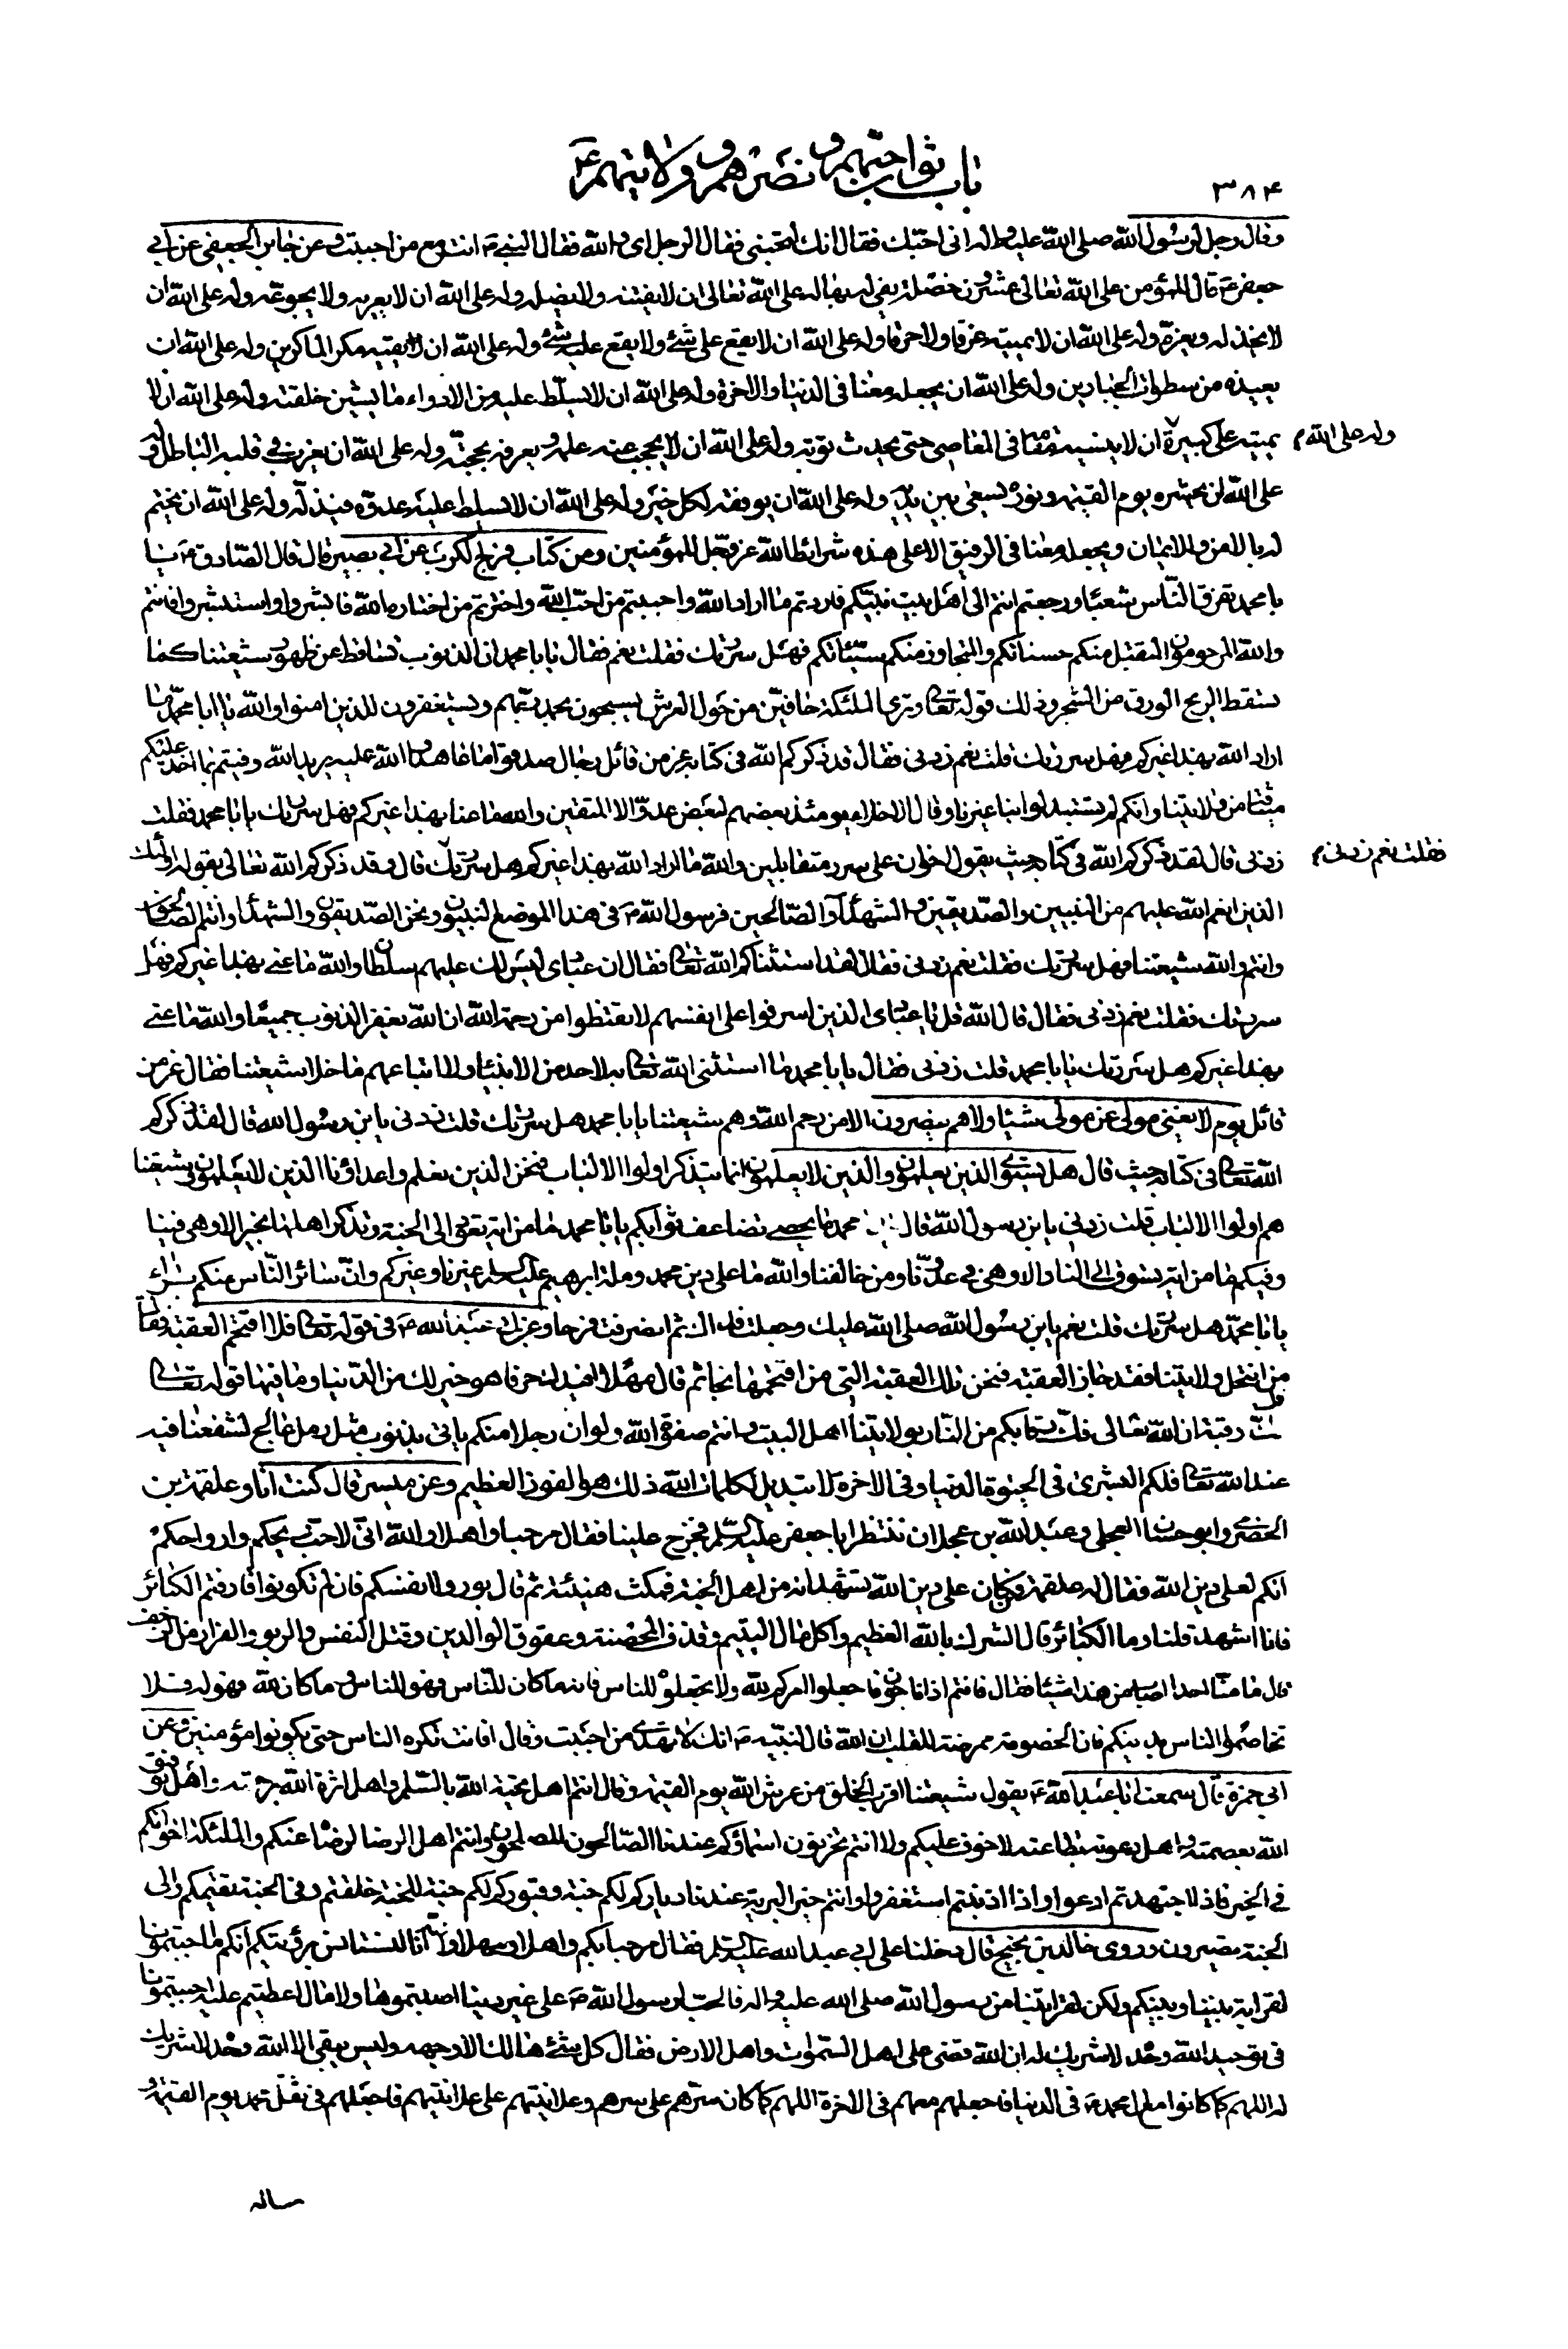 باب ثواب حبّهم و نصرهم و ولايتهم ع
٣٨۴
وقال رجل لرسول الله صلى الله عليه واله انى احبّك فقال انك لتحبنى فقال الرجل اى والله فقال النبي ص انت مع من احببت وعن جابر الجعفى عن ابى
جعفر ع قال للمؤمن على الله تعالى عشرون خصلة يفى له بها له على الله تعالى ان لا يفتنه ولا يضله وله على الله ان لا يعريه ولا يجوعه وله على الله ان
لا يخذله ويعزه وله على الله ان لا يميته غرقا ولا حرقا وله على الله ان لا يقع على شئ ولا يقع عليه شئ وله على الله ان يقيه مكر الماكرين وله على الله ان
يعيذه من سطوات الجبارين وله على الله ان يجعله معنا فى الدنيا والاخرة وله على الله ان لا يسلّط عليه من الادواء ما يشين خلقته وله على الله ان لا
يميته على كبيرة ان لا ينسيه مقامه فى المعاصى حتى يحدث توبة وله على الله ان لا يحجب عنه علمه ويعرفه بحجته وله على الله ان يعزب فى قلبه الباطل وله
وله على الله م
على الله ان يحشره يوم القيمة ونوره يسعى بين يديه وله على الله ان يوفقه لكل خير وله على الله ان لا يسلط عليه عدوه فيذله وله على الله ان يختم
له بالامن والايمان ويجعله معنا فى الرفيق الاعلى هذه شرائط الله عز وجل للمؤمنين ومن كتاب فرج الكرب عن ابى بصير قال قال الصادق ع يا
با محمد تفرق الناس شعبا ورجعتم انتم الى اهل بيت نبيكم فاردتم ما اراد الله واحببتم من احب الله واخترتم من اختاره الله فابشروا واستبشروا فانتم
والله المرحومون المتقبل منكم حسناتكم والمتجاوز منكم سيئاتكم فهل سررتك فقلت نعم فقال يا با محمد ان الذنوب تساقط عن ظهور شيعتنا كما
تسقط الريح الورق من الشجر وذلك قوله تعالى وترى الملئكة حافين من حول العرش يسبحون بحمد ربهم ويستغفرون للذين امنوا والله يا ابا محمد ما
اراد الله بهذا غيركم فهل سررتك قلت نعم زدنى فقال قد ذكركم الله فى كتابه عز من قائل رجال صدقوا ما عاهدوا الله عليه يريد الله وفيتم بما اخذ عليكم
ميثاقه من ولايتنا وانكم لم تستبدلوا بنا غيرنا وقال الاخلاء يومئذ بعضهم لبعض عدوّ الا المتقين والله ما عنا بهذا غيركم فهل سررتك يا با محمد فقلت
زدنى قال لقد ذكركم الله فى كتابه حيث يقول اخوان على سرر متقابلين والله ما اراد الله بهذا غيركم هل سررتك قال وقد ذكركم الله تعالى بقوله اولئك
فقلت نعم زدنى م
الذين انعم الله عليهم من النبيين والصديقين والشهدآء والصالحين فرسول الله ص فى هذا الموضع النبيون ونحن الصديقون والشهدآء وانتم الصالحون
وانتم والله شيعتنا فهل سررتك فقلت نعم زدنى فقال لقد استثناكم الله تعالى فقال ان عبادى ليس لك عليهم سلطان والله ما عنى بهذا غيركم فهل
سررتك فقلت نعم زدنى فقال قال الله قل يا عبادى الذين اسرفوا على انفسهم لا تقنطوا من رحمة الله ان الله يغفر الذنوب جميعا والله ما عنى
بهذا غيركم هل سررتك يا با محمد قلت زدنى فقال يا با محمد ما استثنى الله تعالى به لاحد من الانبياء ولا اتباعهم ما خلا شيعتنا فقال عز من
قائل يوم لا يغنى مولى عن مولى شيئا ولا هم ينصرون الا من رحم الله وهم شيعتنا يا با محمد هل سررتك قلت زدنى يا بن رسول الله قال لقد ذكركم
الله تعالى فى كتابه حيث قال هل يستوى الذين يعلمون والذين لا يعلمون انما يتذكر اولوا الالباب فنحن الذين نعلم واعداؤنا الذين لا يعلمون وشيعتنا
هم اولوا الالباب قلت زدنى يا بن رسول الله قال يا با محمد ما يحصى تضاعف ثوابكم يا با محمد ما من اية تعود الى الجنة وتذكر اهلها بخير الا وهى فينا
وفيكم ما من اية تسوق الى النار الا وهى فى عدوّنا ومن خالفنا والله ما على دين محمد وملة ابرهيم عليه السلام غيرنا وغيركم وانّ سائر الناس منكم براء
يا با محمد هل سررتك قلت نعم يا بن رسول الله صلى الله عليك وجعلت فداك ثم انصرفت فرحا وعن ابى عبد الله ع فى قوله تعالى فلا اقتحم العقبة فقال
من انتحل ولايتنا فقد جاز العقبة فنحن تلك العقبة التى من اقتحمها نجا ثم قال مهلا افيدك حرفا هو خير لك من الدنيا وما فيها قوله تعالى
فك رقبة ان الله تعالى فكّ رقابكم من النار بولايتنا اهل البيت وانتم صفوة الله ولو ان رجلا منكم ياتى بذنوب مثل رمل عالج لشفعنا فيه
عند الله تعالى فلكم البشرى فى الحيوة الدنيا وفى الاخرة لا تبديل لكلمات الله ذلك هو الفوز العظيم وعن ميسر قال كنت انا وعلقمة بن
الحضرمى وابو حسان العجلى وعبد الله بن عجلان ننتظر ابا جعفر عليه السلام فخرج علينا فقال مرحبا واهلا والله انّى لاحب ريحكم وارواحكم
انكم لعلى دين الله فقال له علقمة فمن كان على دين الله تشهد انه من اهل الجنة فمكث هنيئة ثم قال بوروا انفسكم فان لم تكونوا قارفتم الكبائر
فانا اشهد قلنا وما الكبائر قال الشرك بالله العظيم واكل مال اليتيم وقذف المحصنة وعقوق الوالدين وقتل النفس والربو والفرار من الزحف
قال ما منّا احد اصاب من هذا شيئا فقال فانتم اذا ناجون فاجعلوا امركم لله ولا تجعلوه للناس فانه ما كان للناس فهو للناس وما كان لله فهو له فلا
تخاصموا الناس بدينكم فان الخصومة ممرضة للقلب ان الله قال لنبيه ص انك لا تهدى من احببت وقال افانت تكره الناس حتى يكونوا مؤمنين وعن
ابى حمزة قال سمعت ابا عبد الله ع يقول شيعتنا اقرب الخلق من عرش الله يوم القيمة وقال انتم اهل تحية الله بالسلم واهل اثرة الله برحمته واهل توفيق
الله بعصمته واهل دعوته بطاعته لا خوف عليكم ولا انتم تحزنون اسماؤكم عندنا الصالحون المصلحون وانتم اهل الرضا لرضاه عنكم والملئكة اخوانكم
فى الخير فاذا اجتهدتم ادعوا واذا اذنبتم استغفروا وانتم خير البرية عندنا دياركم لكم جنة وقبوركم لكم جنة للجنة خلقتم وفى الجنة نعيمكم والى
الجنة تصيرون وروى خالد بن نجيح قال دخلنا على ابى عبد الله عليه السلام فقال مرحبا بكم واهلا وسهلا والله انا لنستانس برؤيتكم انكم ما احببتمونا
لقرابة بيننا وبينكم ولكن لقرابتنا من رسول الله صلى الله عليه واله فالحب لرسول الله ص على غير دنيا اصبتموها ولا مال اعطيتم عليه احببتمونا
فى توحيد الله وحده لا شريك له ان الله قضى على اهل السموات واهل الارض فقال كل شئ هالك الا وجهه وليس يبقى الا الله وحده لا شريك
له اللهم كما كانوا مع ال محمد ص فى الدنيا فاجعلهم معهم فى الاخرة اللهم كما كان سرّهم على سرهم وعلانيتهم على علانيتهم فاجعلهم فى ثقل محمد يوم القيمة و
ساله